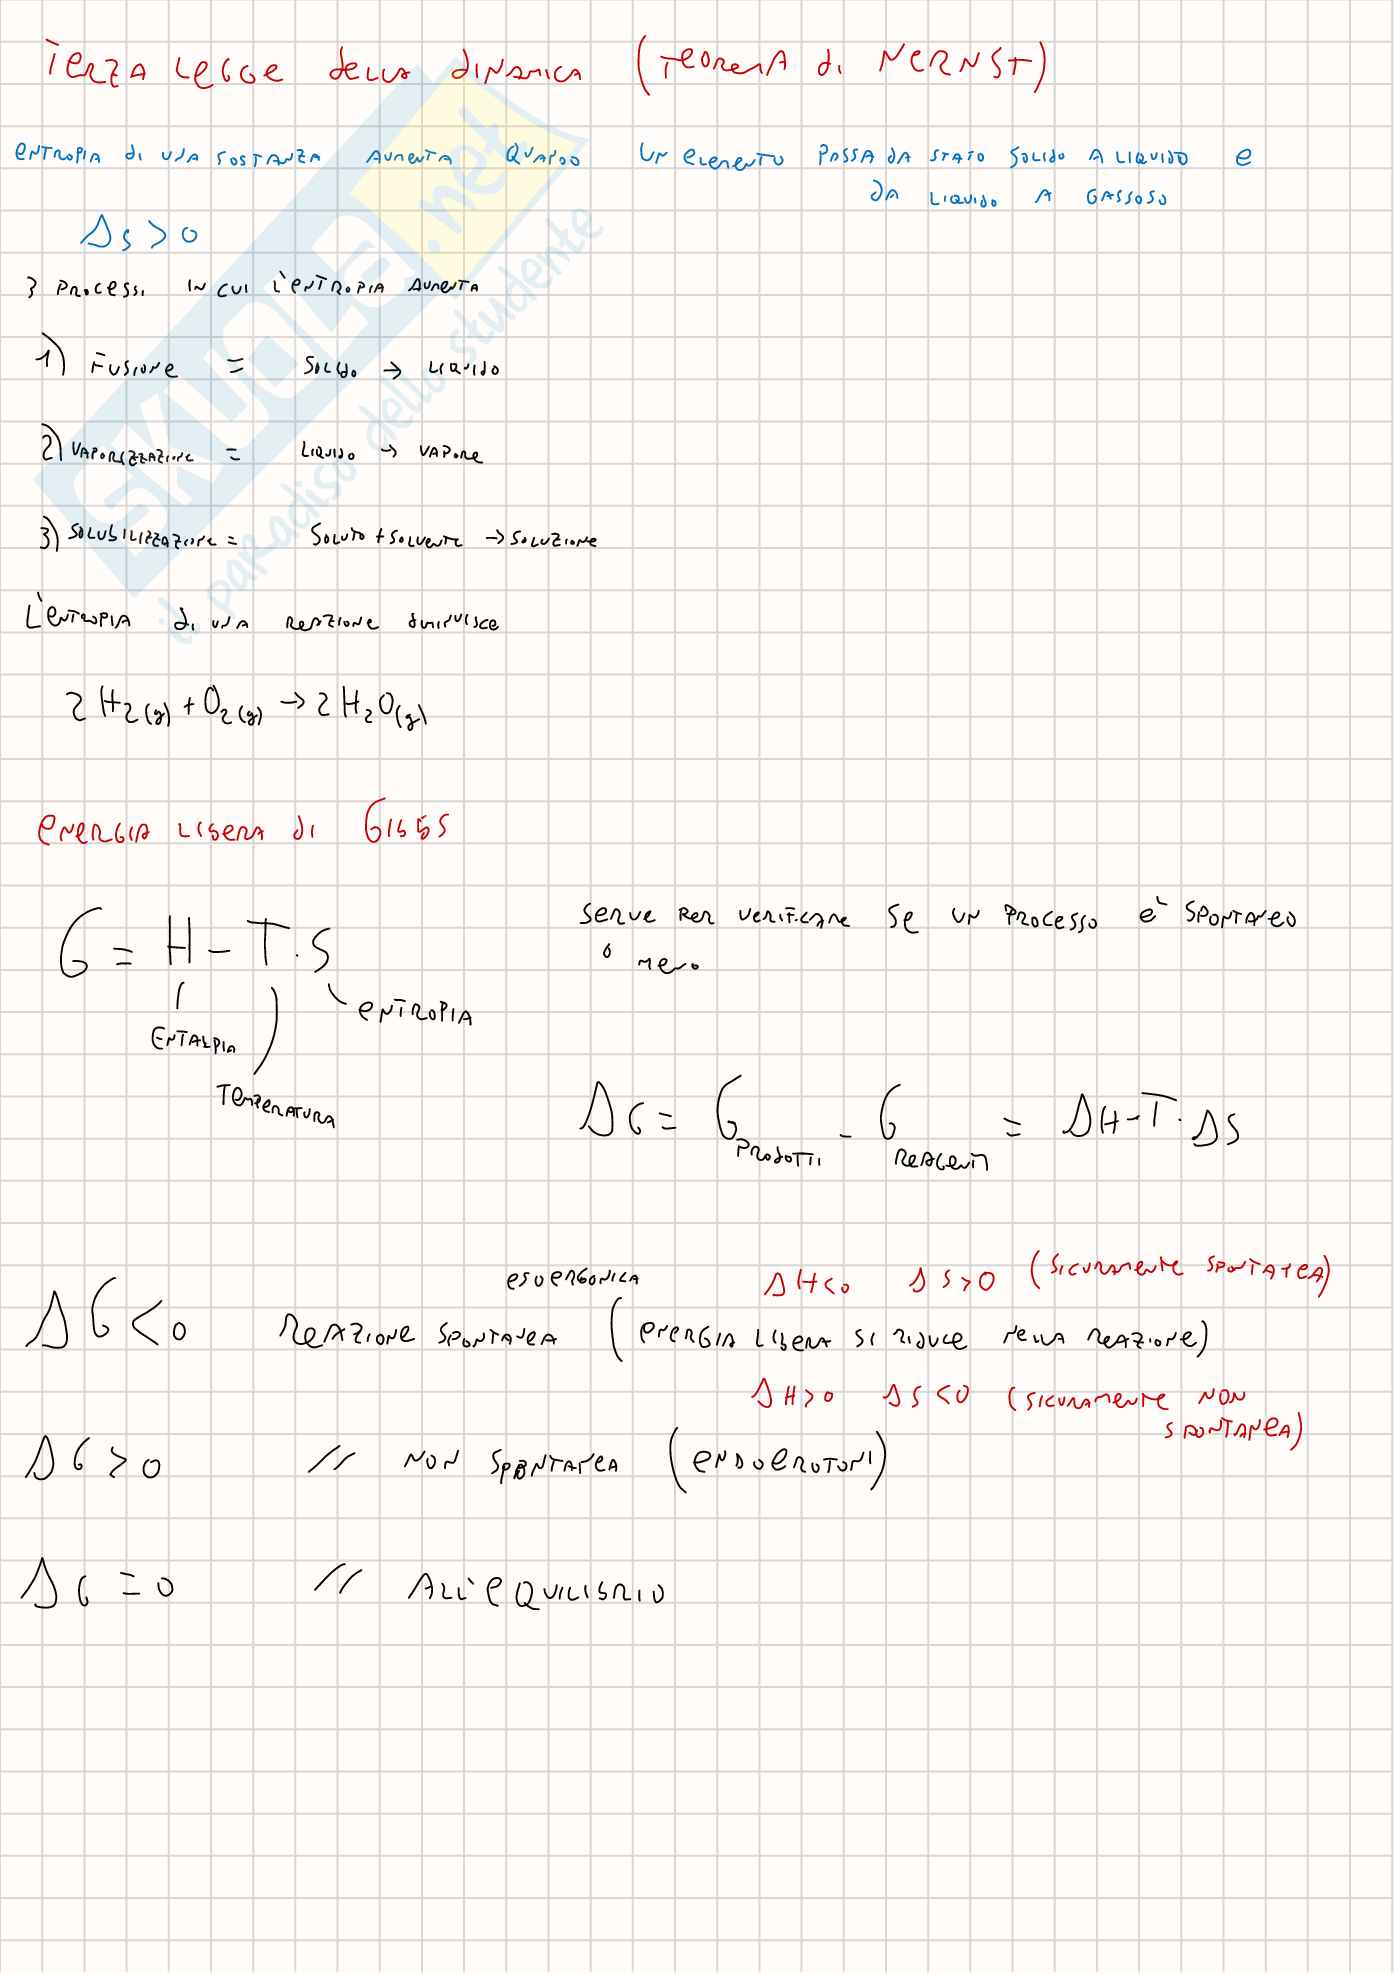 TERZA LEGGE della DINAMICA (TEOREMA di NERNST)
ENTROPIA di UNA SOSTANZA AUMENTA QUANDO UN ELEMENTO PASSA DA STATO SOLIDO A LIQUIDO E
DA LIQUIDO A GASSOSO
ΔS > 0
3 PROCESSI IN CUI L'ENTROPIA AUMENTA
1) FUSIONE = SOLIDO → LIQUIDO
2) VAPORIZZAZIONE = LIQUIDO → VAPORE
3) SOLUBILIZZAZIONE = SOLUTO + SOLVENTE → SOLUZIONE
L'ENTROPIA di UNA REAZIONE DIMINUISCE
2H₂(g) + O₂(g) → 2H₂O(g)
ENERGIA LIBERA di GIBBS
G = H - T · S
SERVE PER VERIFICARE SE UN PROCESSO È SPONTANEO
O MENO
ENTROPIA
ENTALPIA
TEMPERATURA
ΔG = G PRODOTTI - G REAGENTI = ΔH - T · ΔS
ESOERGONICA ΔH<0 ΔS>0 (SICURAMENTE SPONTANEA)
ΔG < 0 REAZIONE SPONTANEA (ENERGIA LIBERA SI RIDUCE NELLA REAZIONE)
ΔH>0 ΔS<0 (SICURAMENTE NON
SPONTANEA)
ΔG > 0 // NON SPONTANEA (ENDOEROTONI)
ΔG = 0 // ALL'EQUILIBRIO
SKUOLA.net
il paradiso dello studente